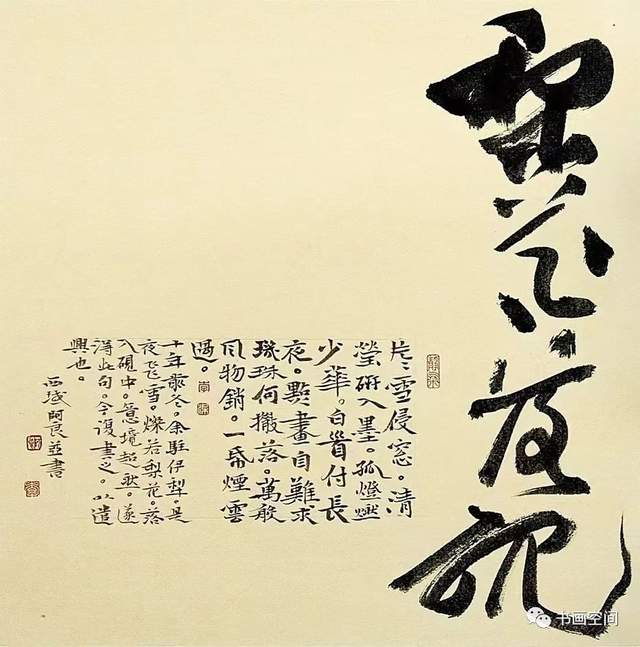 梨花落砚
片々雪侵窓。清
瑩研入墨。孤燈燃
少華。白首付長
夜。點畫自難求
璣珠何撒落。萬般
風物銷。一帋煙雲
過。
十年前冬。余駐伊犁。是
夜飛雪。燦若梨花。落
入硯中。意境超然。遂
得此句。今復書之。以遣
興也。
西域阿良並書
书画空间